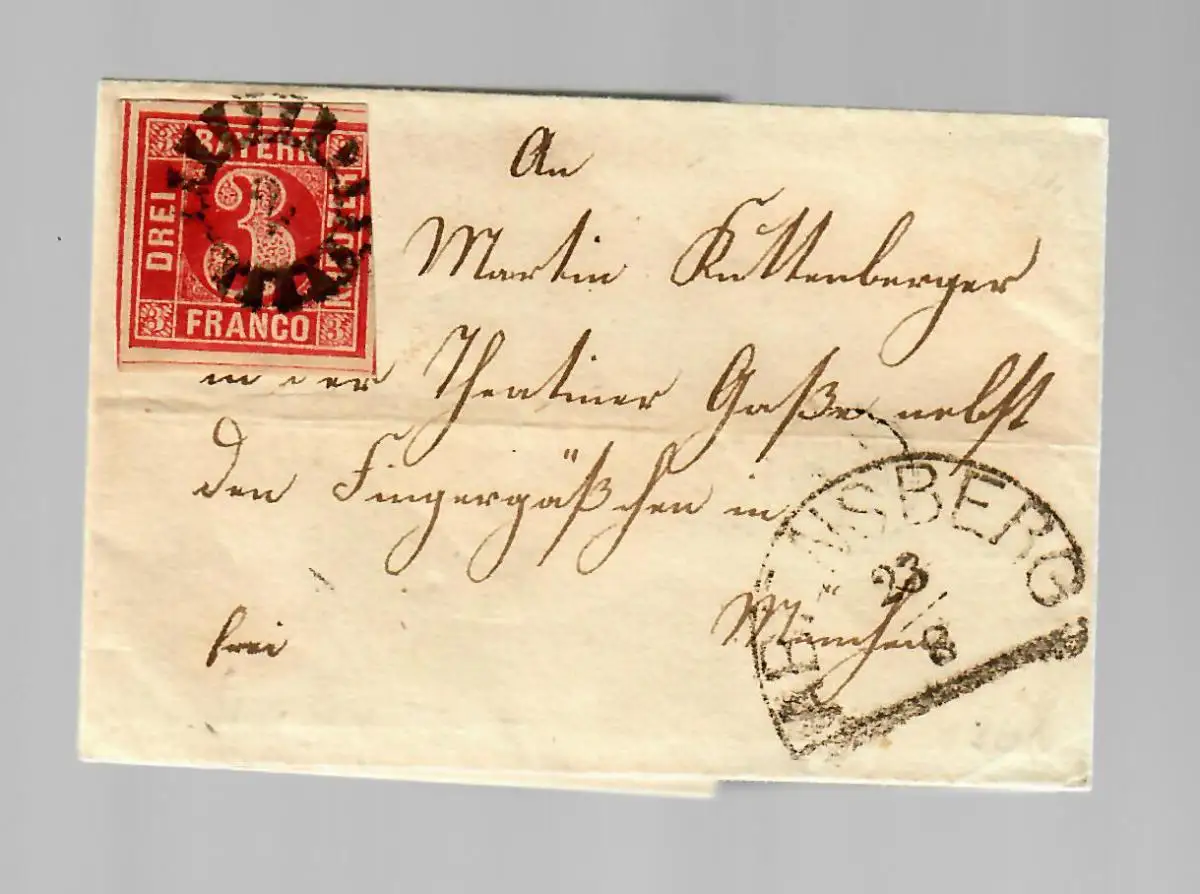 BAYERN
DREI
3
FRANCO
An
Martin Kuttenberger
in der Theatiner Gaße nebst
den Fingergäßchen in
München
frei
23
8